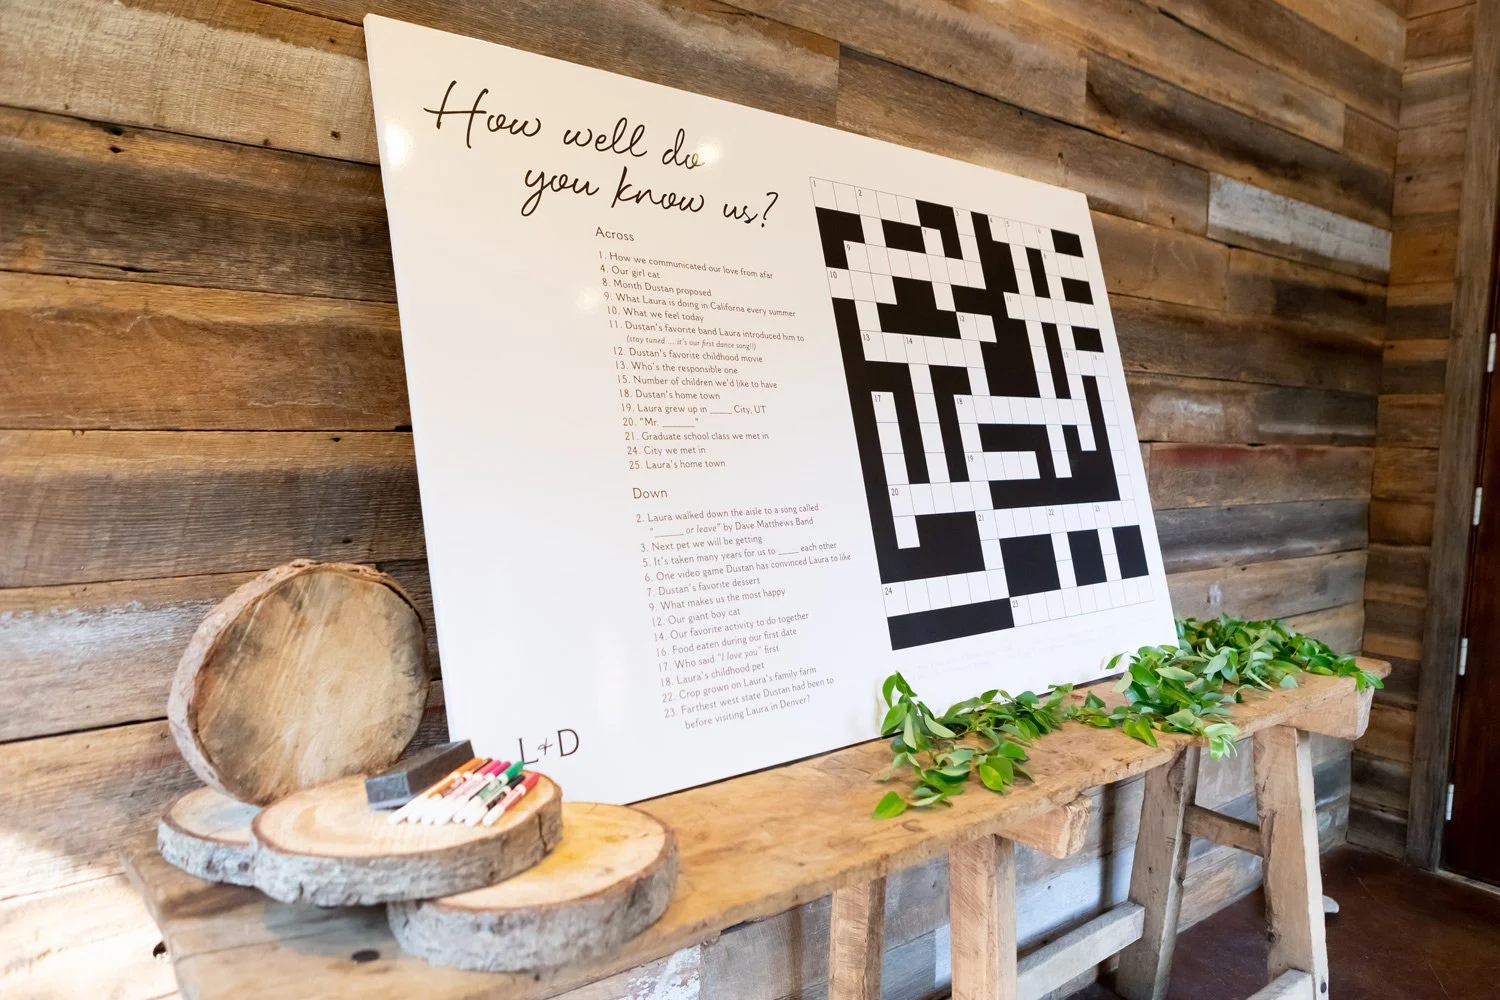 How well do
you know us?
Across
1. How we communicated our love from afar
4. Our girl cat
8. Month Dustan proposed
9. What Laura is doing in Californa every summer
10. What we feel today
11. Dustan's favorite band Laura introduced him to
(stay tuned ... it's our first dance song!!)
12. Dustan's favorite childhood movie
13. Who's the responsible one
15. Number of children we'd like to have
18. Dustan's home town
19. Laura grew up in _____ City, UT
20. "Mr. _______"
21. Graduate school class we met in
24. City we met in
25. Laura's home town
Down
2. Laura walked down the aisle to a song called
"______ or leave" by Dave Matthews Band
3. Next pet we will be getting
5. It's taken many years for us to _____ each other
6. One video game Dustan has convinced Laura to like
7. Dustan's favorite dessert
9. What makes us the most happy
12. Our giant boy cat
14. Our favorite activity to do together
16. Food eaten during our first date
17. Who said "I love you" first
18. Laura's childhood pet
22. Crop grown on Laura's family farm
23. Farthest west state Dustan had been to
before visiting Laura in Denver?
L+D
1 2 3 4 5 6
9
10
11
12
13 14
15 16
17 18
19
20
21 22 23
24
25